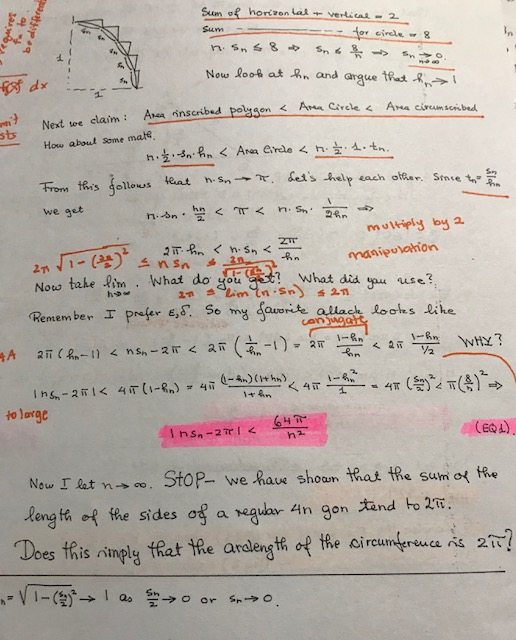 Sum of horizontal + vertical = 2
Sum for circle = 8
n · Sn ≤ 8 ⇒ Sn ≤ 8/n ⇒ Sn → 0
n→∞
Now look at hn and argue that hn → 1
requires
to
be different
dx
1
1
Sn
Sn
Sn
Sn
Next we claim: Area inscribed polygon < Area Circle < Area circumscribed
How about some math.
n · 1/2 · Sn · hn < Area Circle < n · 1/2 · 1 · tn.
From this follows that n · Sn → π. Let's help each other. Since tn = Sn/hn
we get n · Sn · hn/2 < π < n · Sn · 1/2hn ⇒
multiply by 2
2π · hn < n · Sn < 2π/hn
manipulation
Now take lim n→∞. What do you get? What did you use?
2π ≤ lim (n · Sn) ≤ 2π
Remember I prefer ε, δ. So my favorite attack looks like
conjugate
2π (hn - 1) < nSn - 2π < 2π (1/hn - 1) = 2π (1-hn)/hn < 2π (1-hn)/(1/2) WHY?
|nSn - 2π| < 4π (1-hn) = 4π (1-hn)(1+hn)/(1+hn) < 4π (1-hn²)/1 = 4π (Sn/2)² < π (8/n)² ⇒
to large
|nSn - 2π| < 64π/n² (EQ1).
Now I let n → ∞. STOP - we have shown that the sum of the
length of the sides of a regular 4n gon tend to 2π.
Does this imply that the arclength of the circumference is 2π?
= √(1-(Sn/2)²) → 1 as Sn/2 → 0 or Sn → 0.